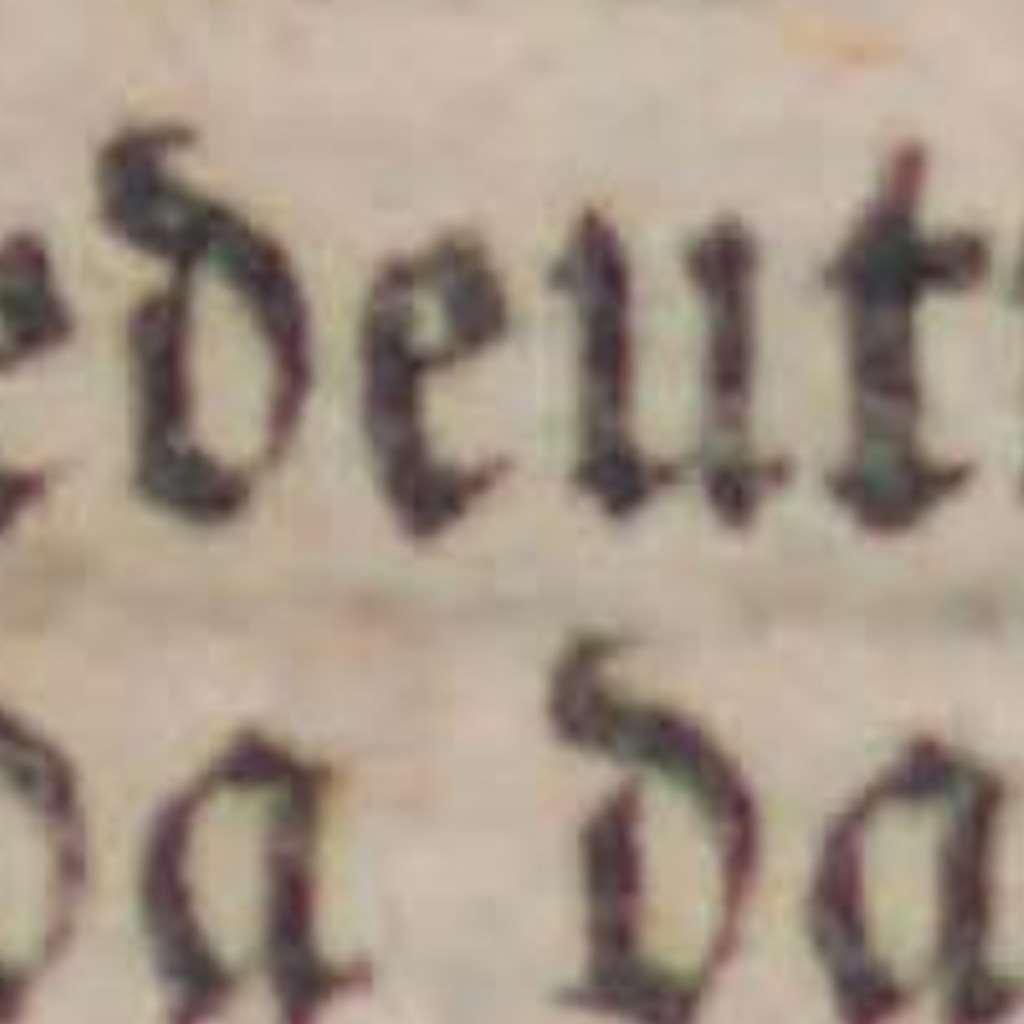 edeut
da da